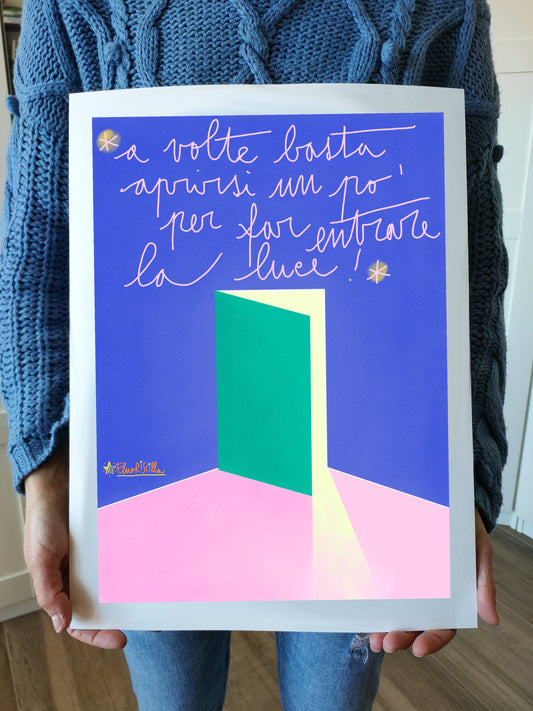 *a volte basta
aprirsi un po'
per far entrare
la luce!*